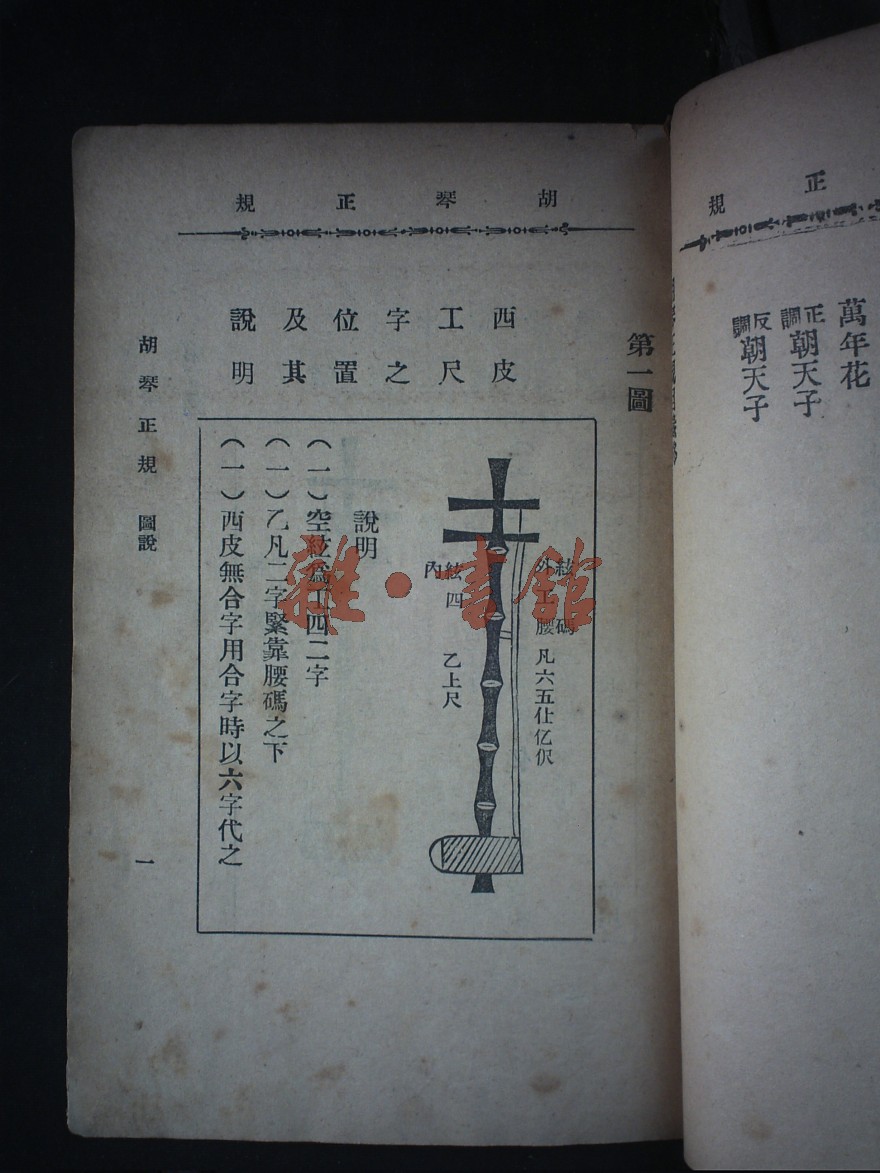 胡琴正規
第一圖
西皮
工尺
字之
位置
及其
說明
外絃
工
腰碼
凡六五仕亿伬
內絃
四
乙上尺
說明
（一）空絃為工四二字
（一）乙凡二字緊靠腰碼之下
（一）西皮無合字用合字時以六字代之
胡琴正規 圖說
一
正規
萬年花
正調朝天子
反調朝天子
雜·書館